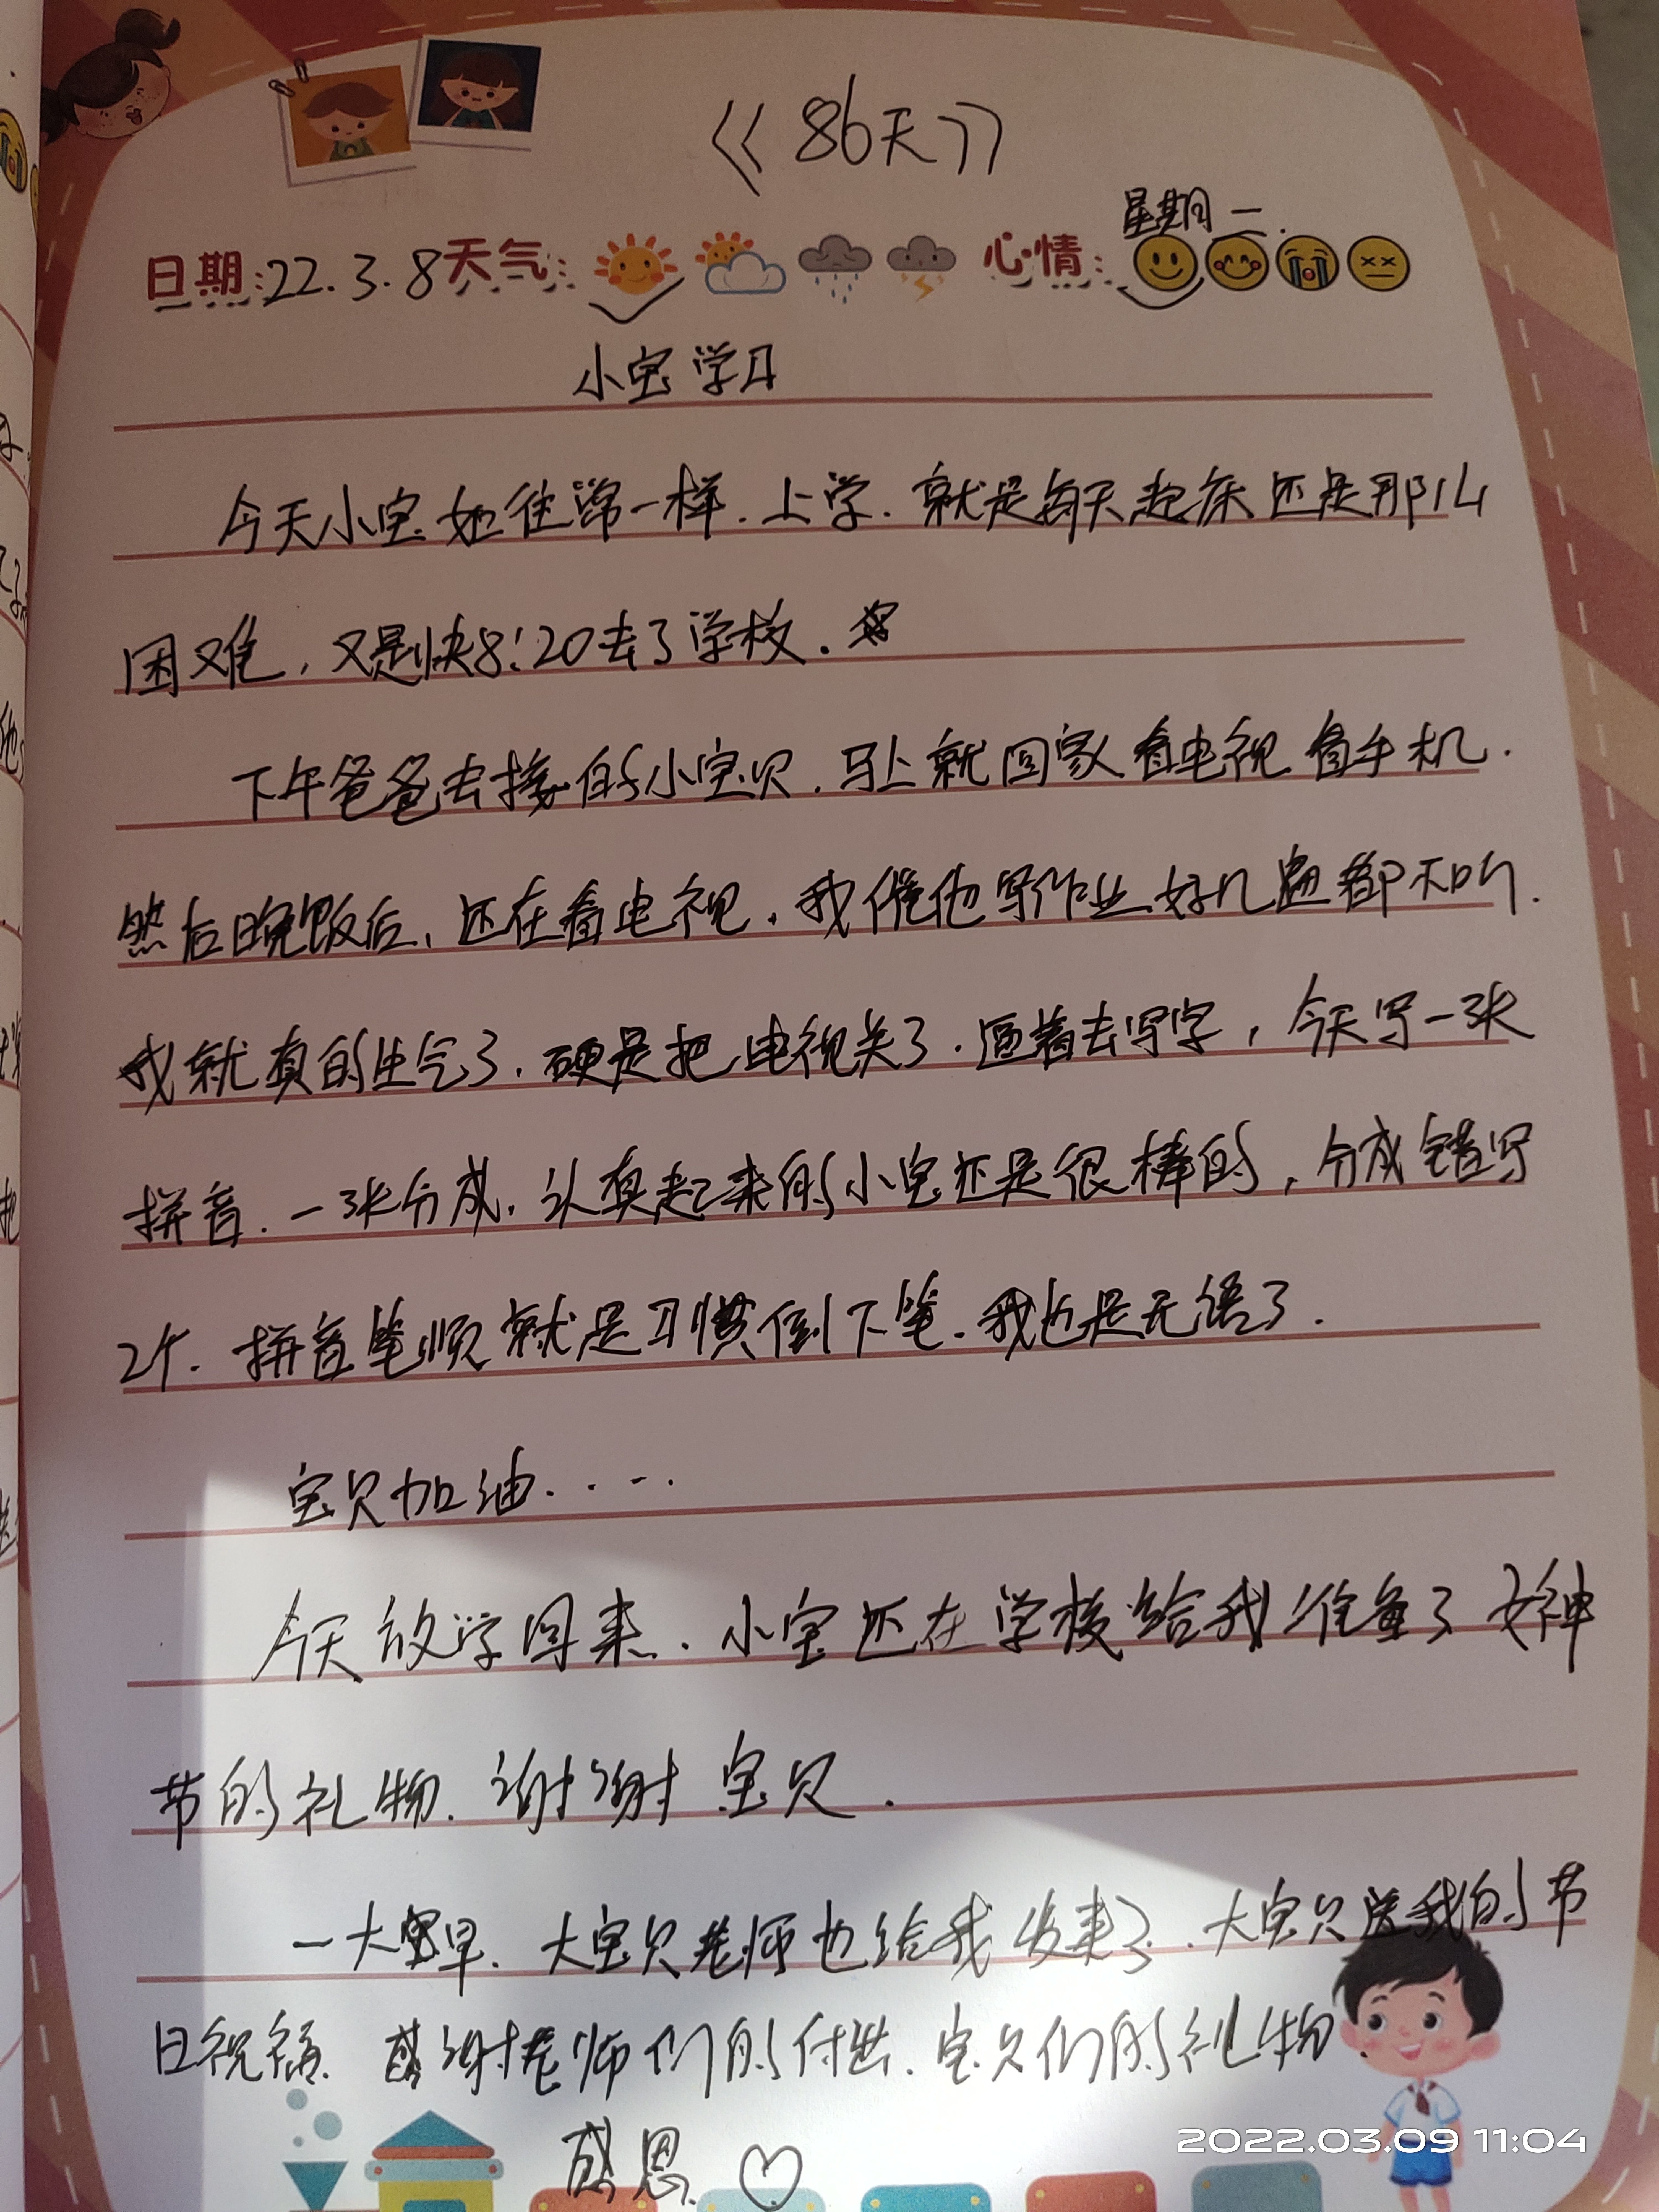 《86天》
星期二.
日期:22.3.8天气: 心情:
小宝学习
今天小宝如往常一样.上学.就是每天起床还是那么
困难,又是快8:20去了学校.
下午爸爸去接的小宝贝.马上就回家看电视看手机.
然后晚饭后,还在看电视.我催他写作业.好几遍都不听.
我就真的生气了.硬是把电视关了.逼着去写字,今天写一张
拼音.一张分成.认真起来的小宝还是很棒的,分成错写
2个.拼音笔顺就是习惯倒下笔.我也是无语了.
宝贝加油.....
今天放学回来.小宝还在学校给我准备了女神
节的礼物.谢谢宝贝.
一大早.大宝贝老师也给我发来了.大宝贝送我的节
日祝福.感谢老师们的付出.宝贝们的礼物.
感恩.♡
2022.03.09 11:04